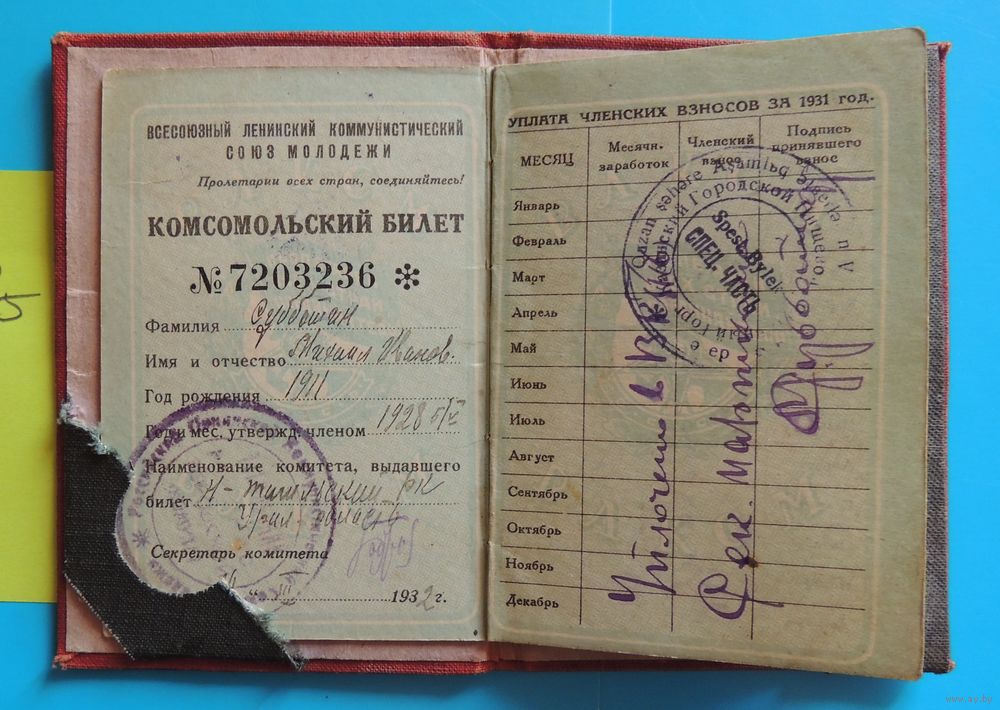 ВСЕСОЮЗНЫЙ ЛЕНИНСКИЙ КОММУНИСТИЧЕСКИЙ
СОЮЗ МОЛОДЕЖИ
Пролетарии всех стран, соединяйтесь!
КОМСОМОЛЬСКИЙ БИЛЕТ
№ 7203236 *
Фамилия Субботин
Имя и отчество Михаил Иванов.
Год рождения 1911
Год и мес. утвержд. членом 1928 5/V
Наименование комитета, выдавшего
билет Н-Тагильский РК
Урал. области
Секретарь комитета
III 1932 г.
УПЛАТА ЧЛЕНСКИХ ВЗНОСОВ ЗА 1931 год.
МЕСЯЦ
Месячн. заработок
Членский взнос
Подпись принявшего взнос
Январь
Февраль
Март
Апрель
Май
Июнь
Июль
Август
Сентябрь
Октябрь
Ноябрь
Декабрь
Уплочено в
Сек.
Qazan şəhəre
Городской
Spest. Bylek
СПЕЦ. ЧАСТЬ
www.av.by